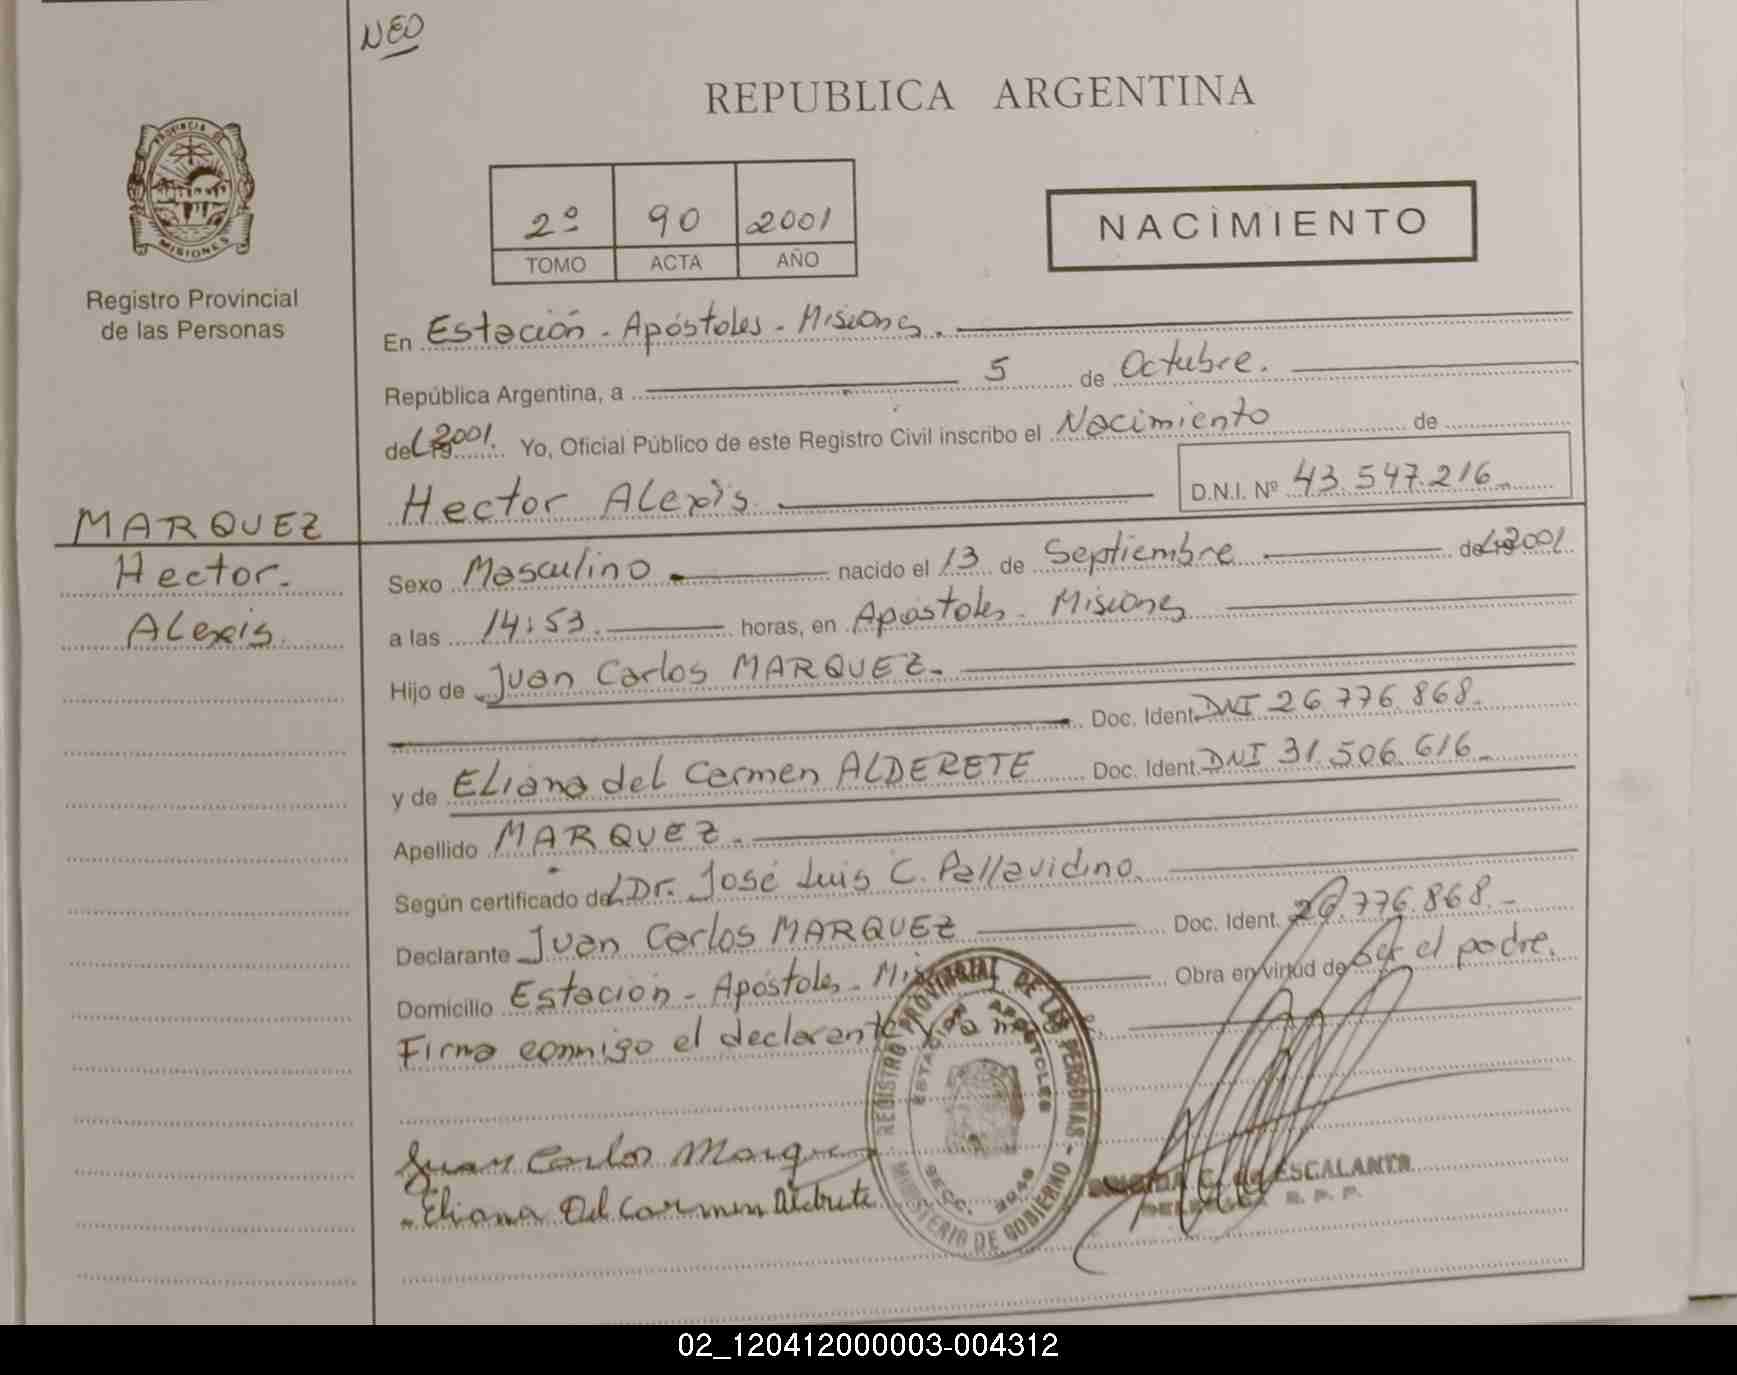 NEO
REPUBLICA ARGENTINA
PROVINCIA DE
MISIONES
Registro Provincial
de las Personas
2º 90 2001
TOMO ACTA AÑO
NACIMIENTO
En Estación - Apóstoles - Misiones.
República Argentina, a 5 de Octubre.
del 2001. Yo, Oficial Público de este Registro Civil inscribo el Nacimiento de
Hector Alexis D.N.I. Nº 43.547.216
MARQUEZ
Hector
Alexis
Sexo Masculino nacido el 13 de Septiembre del 2001
a las 14:53 horas, en Apóstoles - Misiones
Hijo de Juan Carlos MARQUEZ
Doc. Ident. DNI 26.776.868
y de Eliana del Carmen ALDERETE Doc. Ident. DNI 31.506.616
Apellido MARQUEZ
Según certificado del Dr. José Luis C. Pallavidino
Declarante Juan Carlos MARQUEZ Doc. Ident. 26.776.868
Domicilio Estación - Apóstoles - Obra en virtud de Ser el padre.
Firma conmigo el declarante y la
REGISTRO PROVINCIAL DE LAS PERSONAS - MINISTERIO DE GOBIERNO
ESTACION APOSTOLES
SECC.
Juan Carlos Marquez
Eliana Del Carmen Alderete
C. de ESCALANTE
R. P. P.
02_120412000003-004312